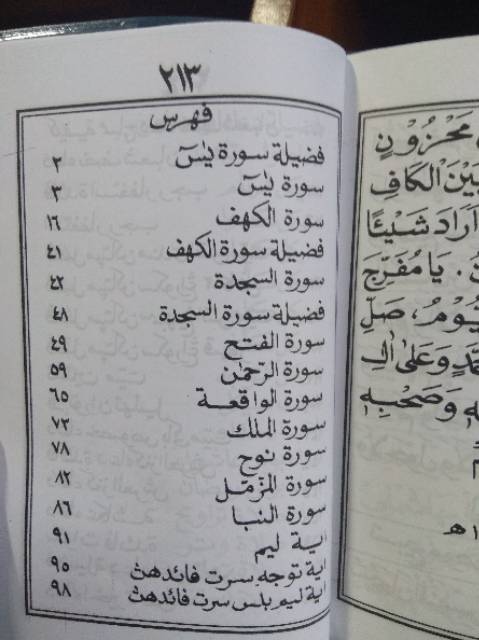 ٢١٣
فهرس
فضيلة سورة يٰسٓ ٢
سورة يٰسٓ ٣
سورة الكهف ١٦
فضيلة سورة الكهف ٤١
سورة السجدة ٤٢
فضيلة سورة السجدة ٤٨
سورة الفتح ٤٩
سورة الرحمٰن ٥٩
سورة الواقعة ٦٥
سورة الملك ٧٣
سورة نوح ٧٨
سورة المزمّل ٨٢
سورة النبا ٨٦
اية ليم ٩١
اية توجه سرت فائدهڽ ٩٥
اية ليم بلس سرت فائدهڽ ٩٨
مَحْزُوْنٍ
بَيْنَ الْكَافِ
اَرَادَ شَيْئًا
. يَا مُفَرِّجَ
يُّوْمُ، صَلِّ
مَّدٍ وَعَلٰى اٰلِ
وَصَحْبِهِ